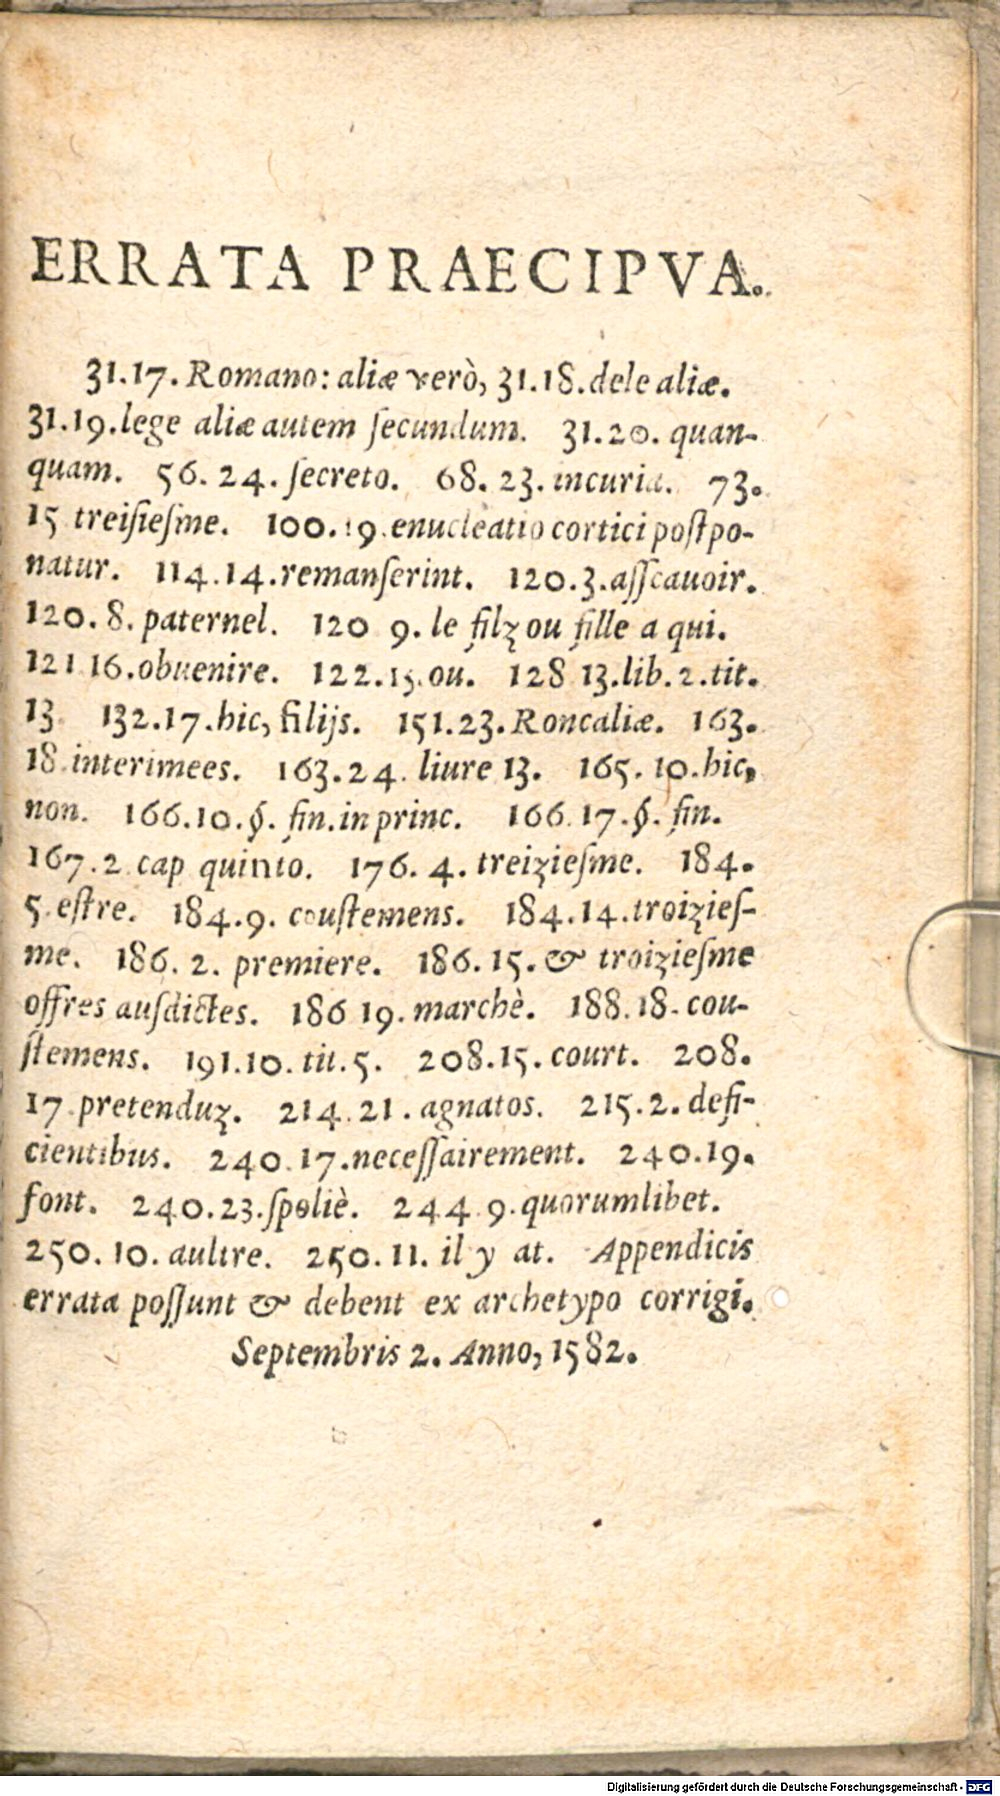 ERRATA PRAECIPVA.
31.17. Romano: aliæ verò, 31.18. dele aliæ.
31.19. lege aliæ autem ſecundum. 31.20. quan-
quam. 56. 24. ſecreto. 68. 23. incuria. 73.
15 treiſieſme. 100. 19. enucleatio cortici poſtpo-
natur. 114. 14. remanſerint. 120. 3. aſſcauoir.
120. 8. paternel. 120 9. le filz ou fille a qui.
121 16. obuenire. 122. 15. ou. 128 13. lib. 2. tit.
13 132. 17. hic, filijs. 151. 23. Roncaliæ. 163.
18 interimees. 163. 24. liure 13. 165. 10. hic,
non. 166. 10. §. fin. in princ. 166. 17. §. fin.
167. 2 cap quinto. 176. 4. treizieſme. 184.
5 eſtre. 184. 9. couſtemens. 184. 14. troizieſ-
me. 186. 2. premiere. 186. 15. & troizieſme
offres auſdictes. 186 19. marchè. 188. 18. cou-
ſtemens. 191. 10. tit. 5. 208. 15. court. 208.
17 pretenduz. 214. 21. agnatos. 215. 2. defi-
cientibus. 240. 17. neceſſairement. 240. 19.
font. 240. 23. ſpoliè. 244 9. quorumlibet.
250. 10. aultre. 250. 11. il y at. Appendicis
errata poſſunt & debent ex archetypo corrigi.
Septembris 2. Anno, 1582.
Digitalisierung gefördert durch die Deutsche Forschungsgemeinschaft - DFG